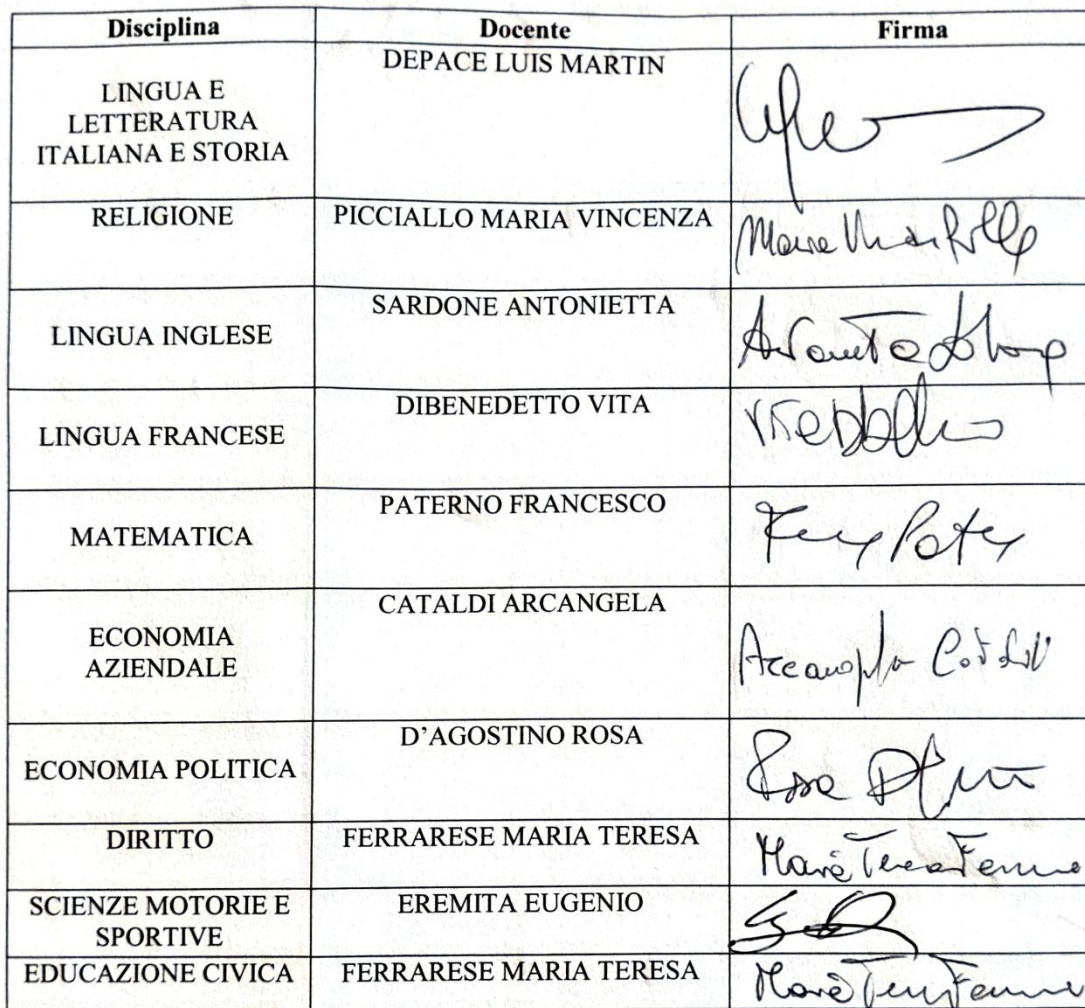 Disciplina Docente Firma
LINGUA E
LETTERATURA
ITALIANA E STORIA
DEPACE LUIS MARTIN
RELIGIONE PICCIALLO MARIA VINCENZA
LINGUA INGLESE SARDONE ANTONIETTA
LINGUA FRANCESE DIBENEDETTO VITA
MATEMATICA PATERNO FRANCESCO
ECONOMIA
AZIENDALE
CATALDI ARCANGELA
ECONOMIA POLITICA D’AGOSTINO ROSA
DIRITTO FERRARESE MARIA TERESA
SCIENZE MOTORIE E
SPORTIVE
EREMITA EUGENIO
EDUCAZIONE CIVICA FERRARESE MARIA TERESA